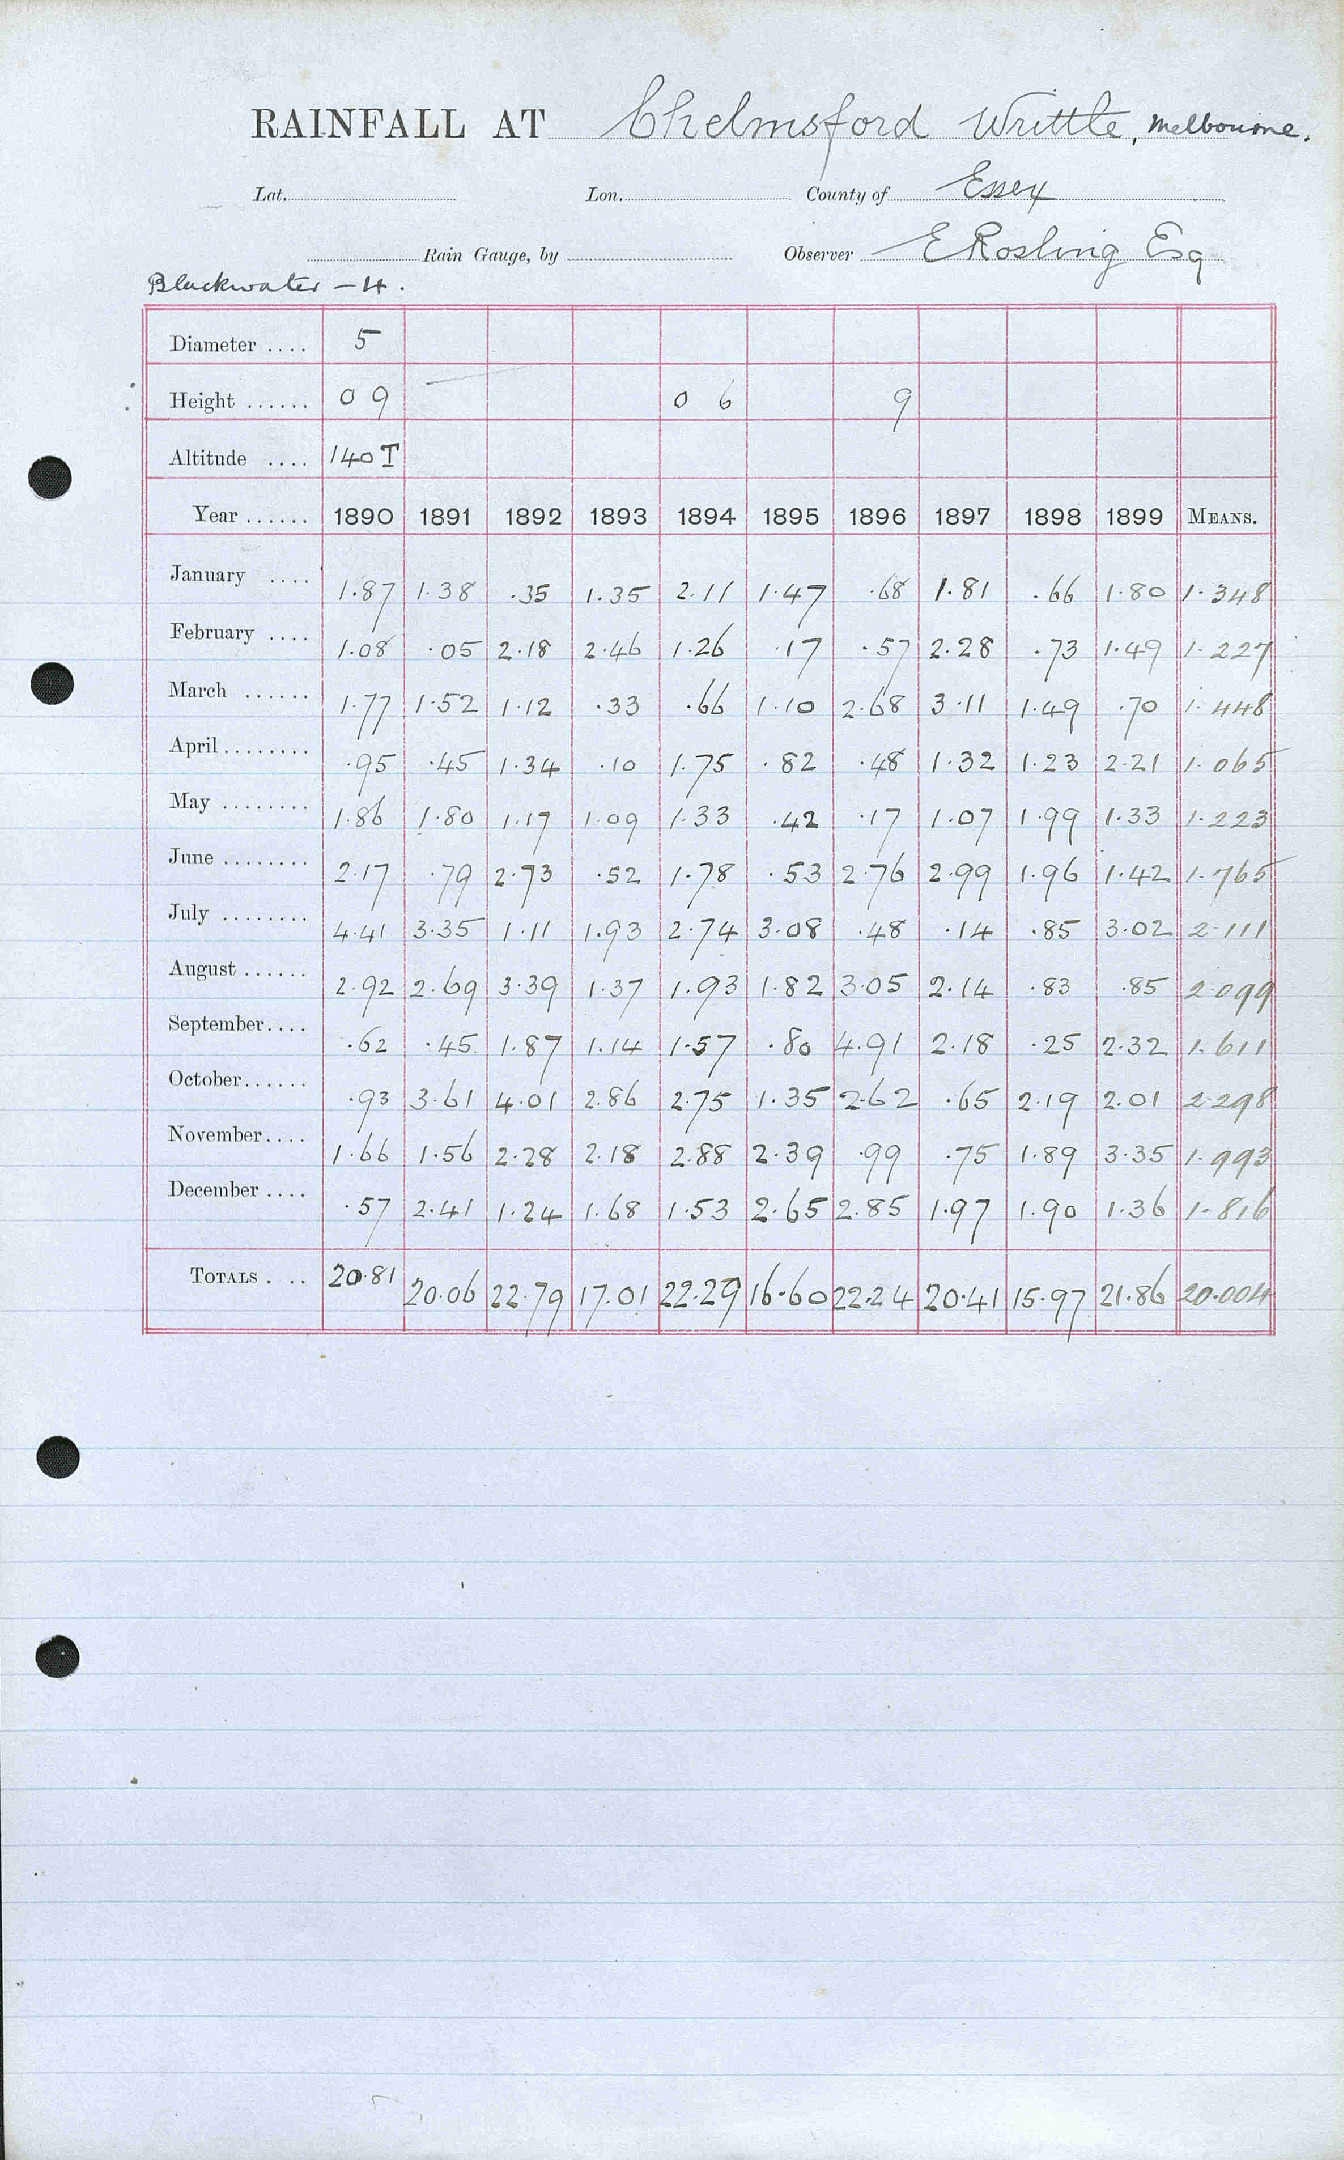 RAINFALL AT Chelmsford Writtle, Melbourne.
Lat. Lon. County of Essex
Rain Gauge, by Observer E Rosling Esq
Blackwater - 4.
Diameter .... 5
Height ...... 0 9 0 6 9
Altitude .... 140 T
Year ...... 1890 1891 1892 1893 1894 1895 1896 1897 1898 1899 MEANS.
January .... 1.87 1.38 .35 1.35 2.11 1.47 .68 1.81 .66 1.80 1.348
February .... 1.08 .05 2.18 2.46 1.26 .17 .57 2.28 .73 1.49 1.227
March ...... 1.77 1.52 1.12 .33 .66 1.10 2.68 3.11 1.49 .70 1.448
April ........ .95 .45 1.34 .10 1.75 .82 .48 1.32 1.23 2.21 1.065
May ........ 1.86 1.80 1.17 1.09 1.33 .42 .17 1.07 1.99 1.33 1.223
June ........ 2.17 .79 2.73 .52 1.78 .53 2.76 2.99 1.96 1.42 1.765
July ........ 4.41 3.35 1.11 1.93 2.74 3.08 .48 .14 .85 3.02 2.111
August ...... 2.92 2.69 3.39 1.37 1.93 1.82 3.05 2.14 .83 .85 2.099
September .... .62 .45 1.87 1.14 1.57 .80 4.91 2.18 .25 2.32 1.611
October ...... .93 3.61 4.01 2.86 2.75 1.35 2.62 .65 2.19 2.01 2.298
November .... 1.66 1.56 2.28 2.18 2.88 2.39 .99 .75 1.89 3.35 1.993
December .... .57 2.41 1.24 1.68 1.53 2.65 2.85 1.97 1.90 1.36 1.816
TOTALS .... 20.81 20.06 22.79 17.01 22.29 16.60 22.24 20.41 15.97 21.86 20.004